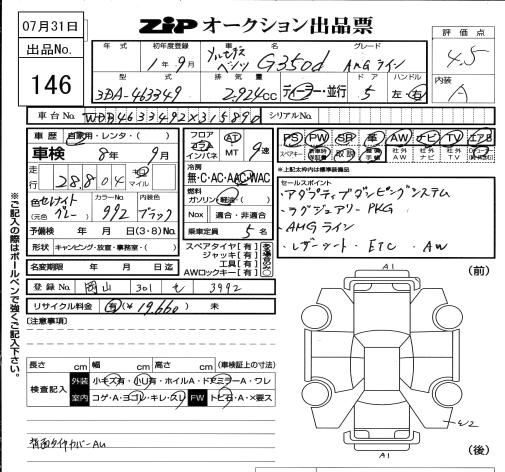 07月31日
ZiP オークション出品票
評価点
4.5
内装
A
出品No.
146
年式
初年度登録
車名
グレード
1年9月
メルセデス ベンツ G350d
AMGライン
型式
排気量
ドア
ハンドル
3DA-463349
2,924CC
ディーラー・並行
5
左・右
車台No.
WDB4633492X315890
シリアルNo.
車歴
自家用・レンタ・( )
フロア
フラット
インパネ
AT
MT
9速
PS
PW
SR
革
AW
ナビ
TV
エアB
車検
8年 9月
冷房
無・C・AC・AAC・WAC
スペアキー
取説
社外AW
社外ナビ
社外TV
※上記太枠内は標準装備品
走行
28,804
キロ
マイル
燃料
ガソリン(軽油・)
セールスポイント
・アダプティブダンピングシステム
・ラグジュアリーPKG
・AMGライン
・レザーシート・ETC・AW
色
(元色 グレー)
カラーNo.
992
ブラック
Nox
適合・非適合
予備検
年 月 日(3・8)No.
乗車定員
5名
形状
キャンピング・放室・事務室・( )
スペアタイヤ【有】
ジャッキ【有】
工具【有】
AWロックキー【有】
名変期限
年 月 日迄
登録No.
岡山 301 せ 3992
リサイクル料金
有(¥19,660) 未
【注意事項】
※ご記入の際はボールペンで強くご記入下さい。
(前)
A1
長さ cm 幅 cm 高さ cm (車検証上の寸法)
検査記入
外装
小キズ有・小U有・ホイルA・ドアミラーA・ワレ
室内
コゲ・A・ヨゴレ・キレ・スレ
FW
トビ石・A・×要ス
背面タイヤカバーAU
W2
A1
(後)